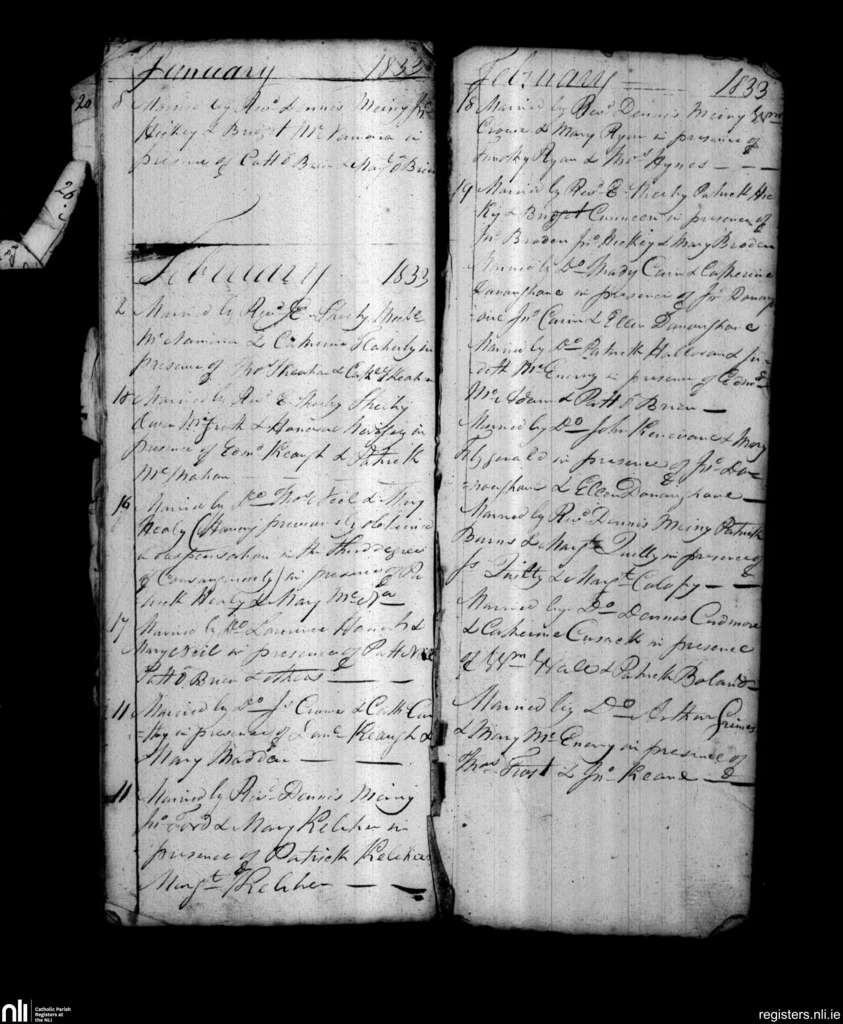 January 1833
8 Married by Revd. Dennis Meiny Jno.
Hickey & Bridget McNamara in
presence of Catt O Brien & Margt O Brien
February 1833
2 Married by Revd. E. Sheehy
McNamara & Catherine Flaherty in
presence of Thos.
10 Married by Revd. E. Sheehy
Owen & Honora in
presence of Edmd. Keough & Patrick
McMahon
16 Married by Do Thos. Neil & Mary
Healy (Having previously obtained
a dispensation in the third degree
of Consanguinity) in presence of Pa
trick Healy & Mary
17 Married by Do Lawrence &
Mary Neil in presence of Patt Neil
Patt O Brien & others
11 Married by Do Js. Crowe & Cath
in presence of Danl. Keough &
Mary Madden
11 Married by Revd. Dennis Meiny
Jno. Ford & Mary Keleher in
presence of Patrick Keleher
Margt. Keleher
February 1833
18 Married by Revd. Dennis Meiny Wm.
Crowe & Mary Ryan in presence of
Timothy Ryan & Thos. Hynes
19 Married by Revd. E. Sheehy Patrick Hic
key & Bridget Cunneen in presence of
Jno. Broden Jno. Hickey & Mary Broden
Married by Do Thady & Catherine
Donoughane in presence of Jno. Donough
ane Jno. & Ellen Donoughane
Married by Do Patrick Halloran & Ju
McEnery in presence of Edmd.
McAdam & Patt O Brien
Married by Do John & Mary
Fitzgerald in presence of Jno. Do
noughane & Ellen Donoughane
Married by Revd. Dennis Meiny Patrick
Burns & Margt. Quilty in presence of
Js. Quilty & Margt. Colopy
Married by Do Dennis Cudmore
& Catherine Cusack in presence
of Wm. Hale & Patrick Boland
Married by Do Arthur Grimes
& Mary McEnery in presence of
Thos. Frost & Jno. Keane
nli Catholic Parish
Registers at
the NLI
registers.nli.ie